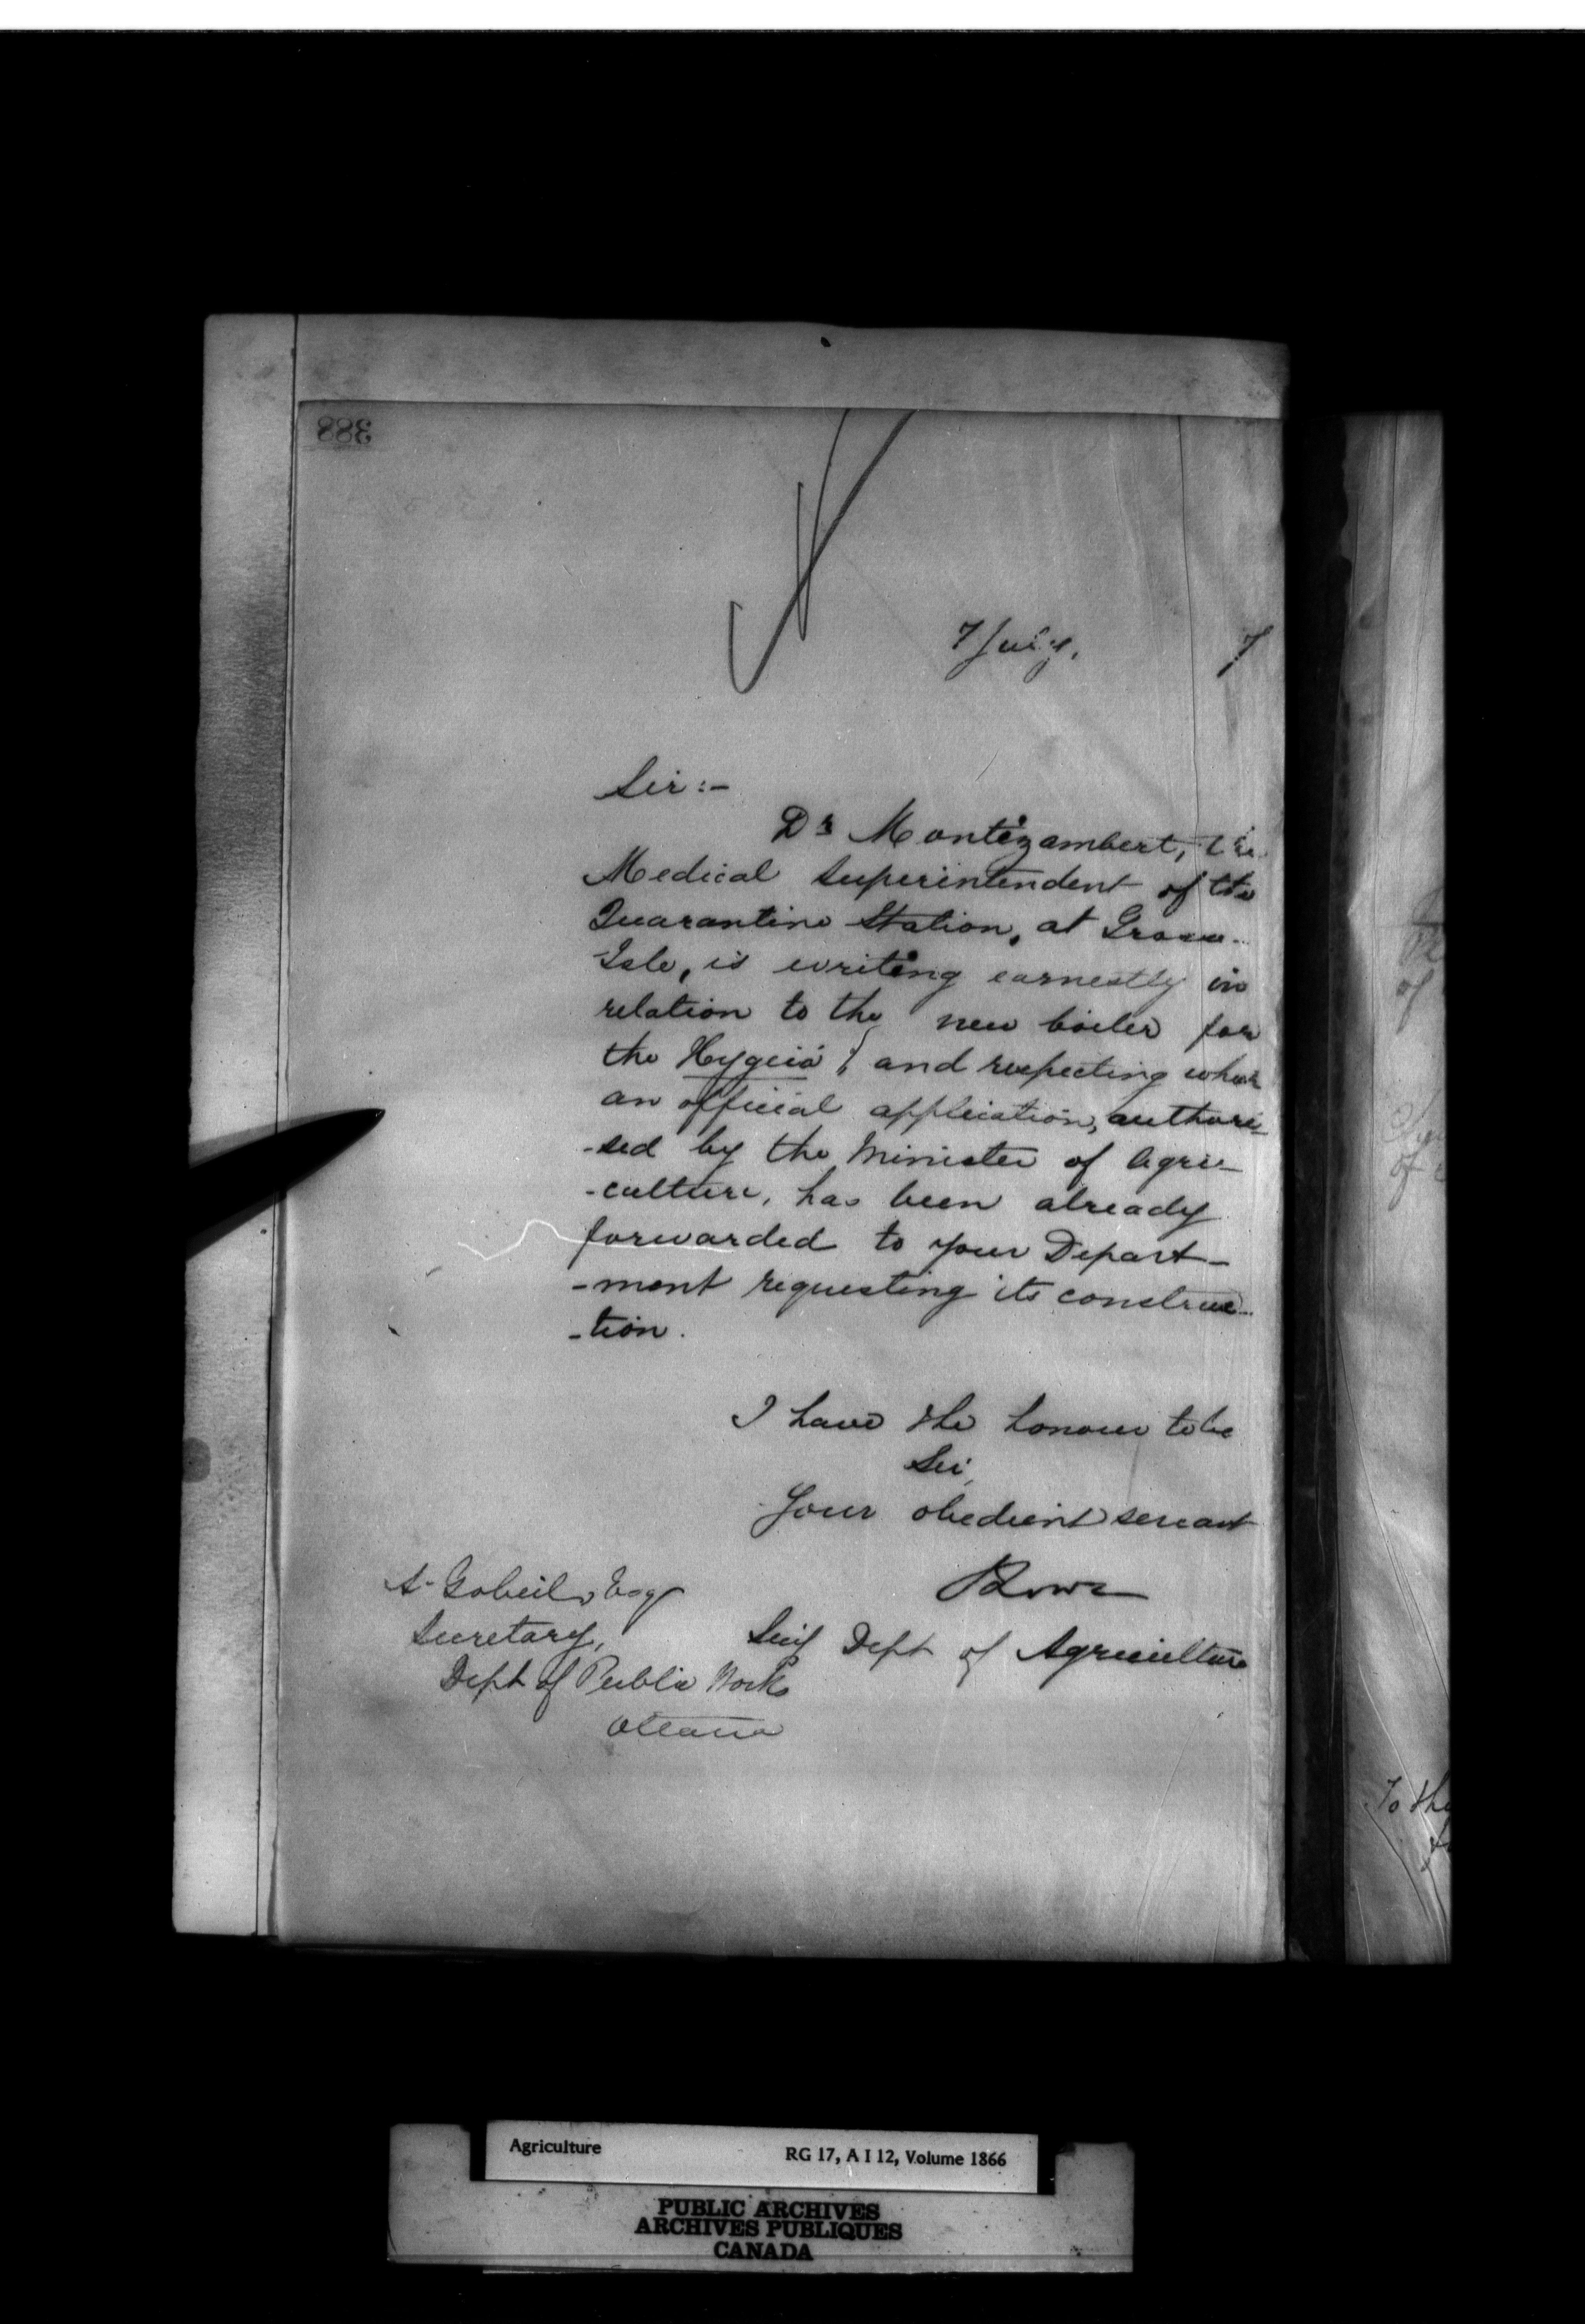 388
7 July, 7
Sir:-
Dr Montizambert, the
Medical Superintendent of the
Quarantine Station, at Grosse
Isle, is writing earnestly in
relation to the new boiler for
the Hygeia, and respecting which
an official application, authori-
-sed by the Minister of Agri-
-culture, has been already
forwarded to your Depart-
-ment requesting its construc-
-tion.
I have the honour to be
Sir,
Your obedient servant
Lowe
Secy Dept of Agriculture
A. Gobeil, Esq
Secretary,
Dept of Public Works
Ottawa
of
of
To the
Agriculture RG 17, A I 12, Volume 1866
PUBLIC ARCHIVES
ARCHIVES PUBLIQUES
CANADA